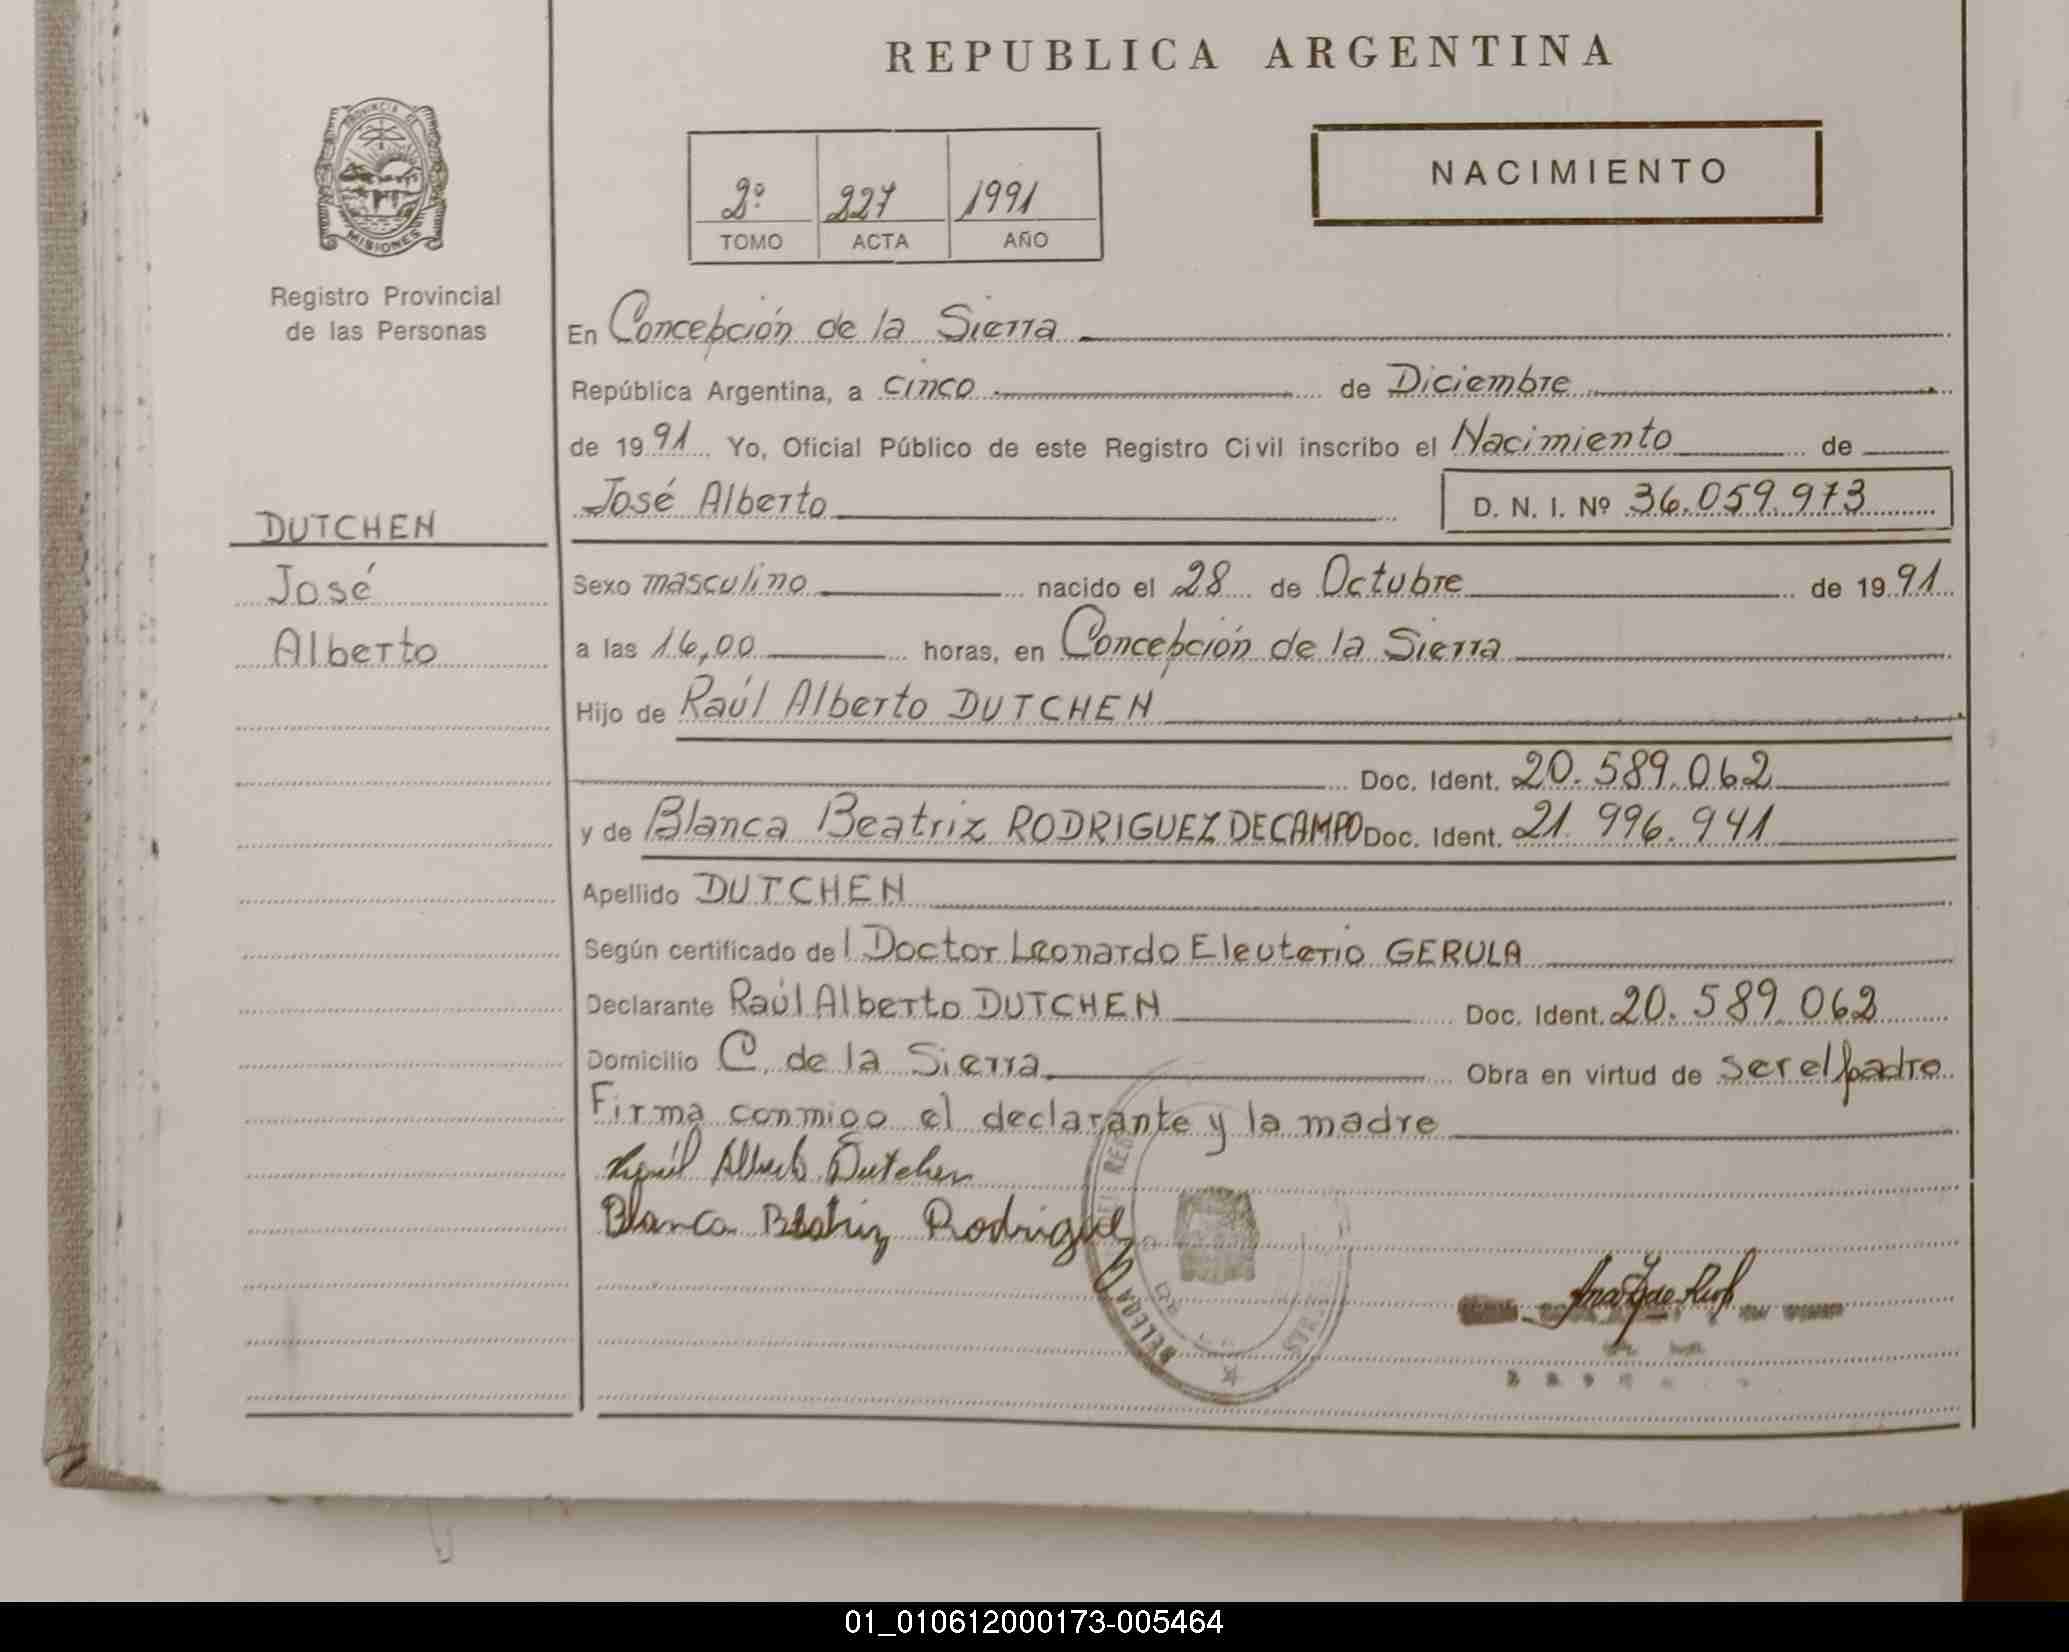 REPUBLICA ARGENTINA
PROVINCIA DE
MISIONES
Registro Provincial
de las Personas
NACIMIENTO
2º 227 1991
TOMO ACTA AÑO
En Concepción de la Sierra
República Argentina, a cinco de Diciembre
de 1991 Yo, Oficial Público de este Registro Civil inscribo el Nacimiento de
José Alberto D. N. I. Nº 36.059.973
DUTCHEN
José
Alberto
Sexo masculino nacido el 28 de Octubre de 1991
a las 16,00 horas, en Concepción de la Sierra
Hijo de Raúl Alberto DUTCHEN
Doc. Ident. 20.589.062
y de Blanca Beatriz RODRIGUEZ DECAMPO Doc. Ident. 21.996.941
Apellido DUTCHEN
Según certificado del Doctor Leonardo Eleuterio GERULA
Declarante Raúl Alberto DUTCHEN Doc. Ident. 20.589.062
Domicilio C. de la Sierra Obra en virtud de ser el padre
Firma conmigo el declarante y la madre
Raúl Alberto Dutchen
Blanca Beatriz Rodriguez
01_010612000173-005464